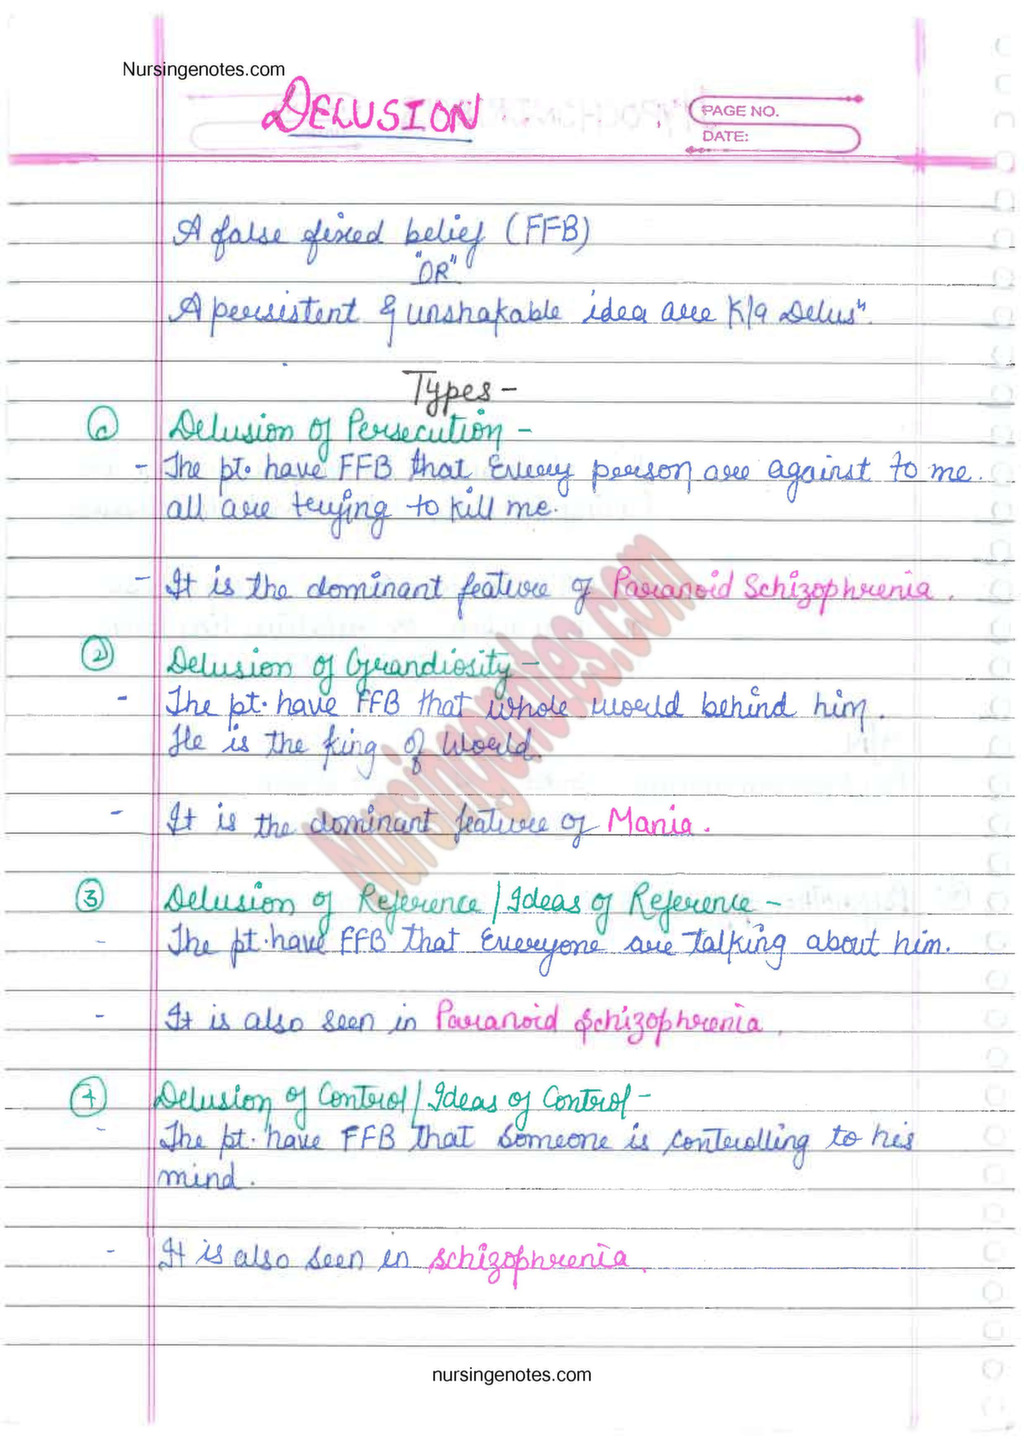 Nursingenotes.com
DELUSION
PAGE NO.
DATE:
A false fixed belief (FFB)
"OR"
A persistent & unshakable idea are K/a Delusⁿ.
Types -
Delusion of Persecution -
- The pt. have FFB that Every person are against to me.
all are trying to kill me.
- It is the dominant feature of Paranoid Schizophrenia.
② Delusion of Grandiosity -
- The pt. have FFB that whole world behind him.
He is the king of World.
- It is the dominant feature of Mania.
③ Delusion of Reference / Ideas of Reference -
- The pt. have FFB that Everyone are talking about him.
- It is also seen in Paranoid Schizophrenia.
④ Delusion of Control / Ideas of Control -
- The pt. have FFB that someone is controlling to his
mind.
- It is also seen in schizophrenia.
Nursingenotes.com
nursingenotes.com